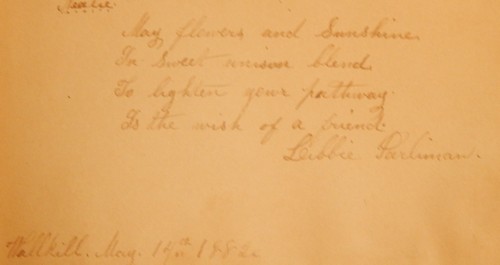 May flowers and Sunshine
In sweet unison blend
To lighten your pathway
Is the wish of a friend
Libbie Parliman.
Wallkill. May. 14th 1882